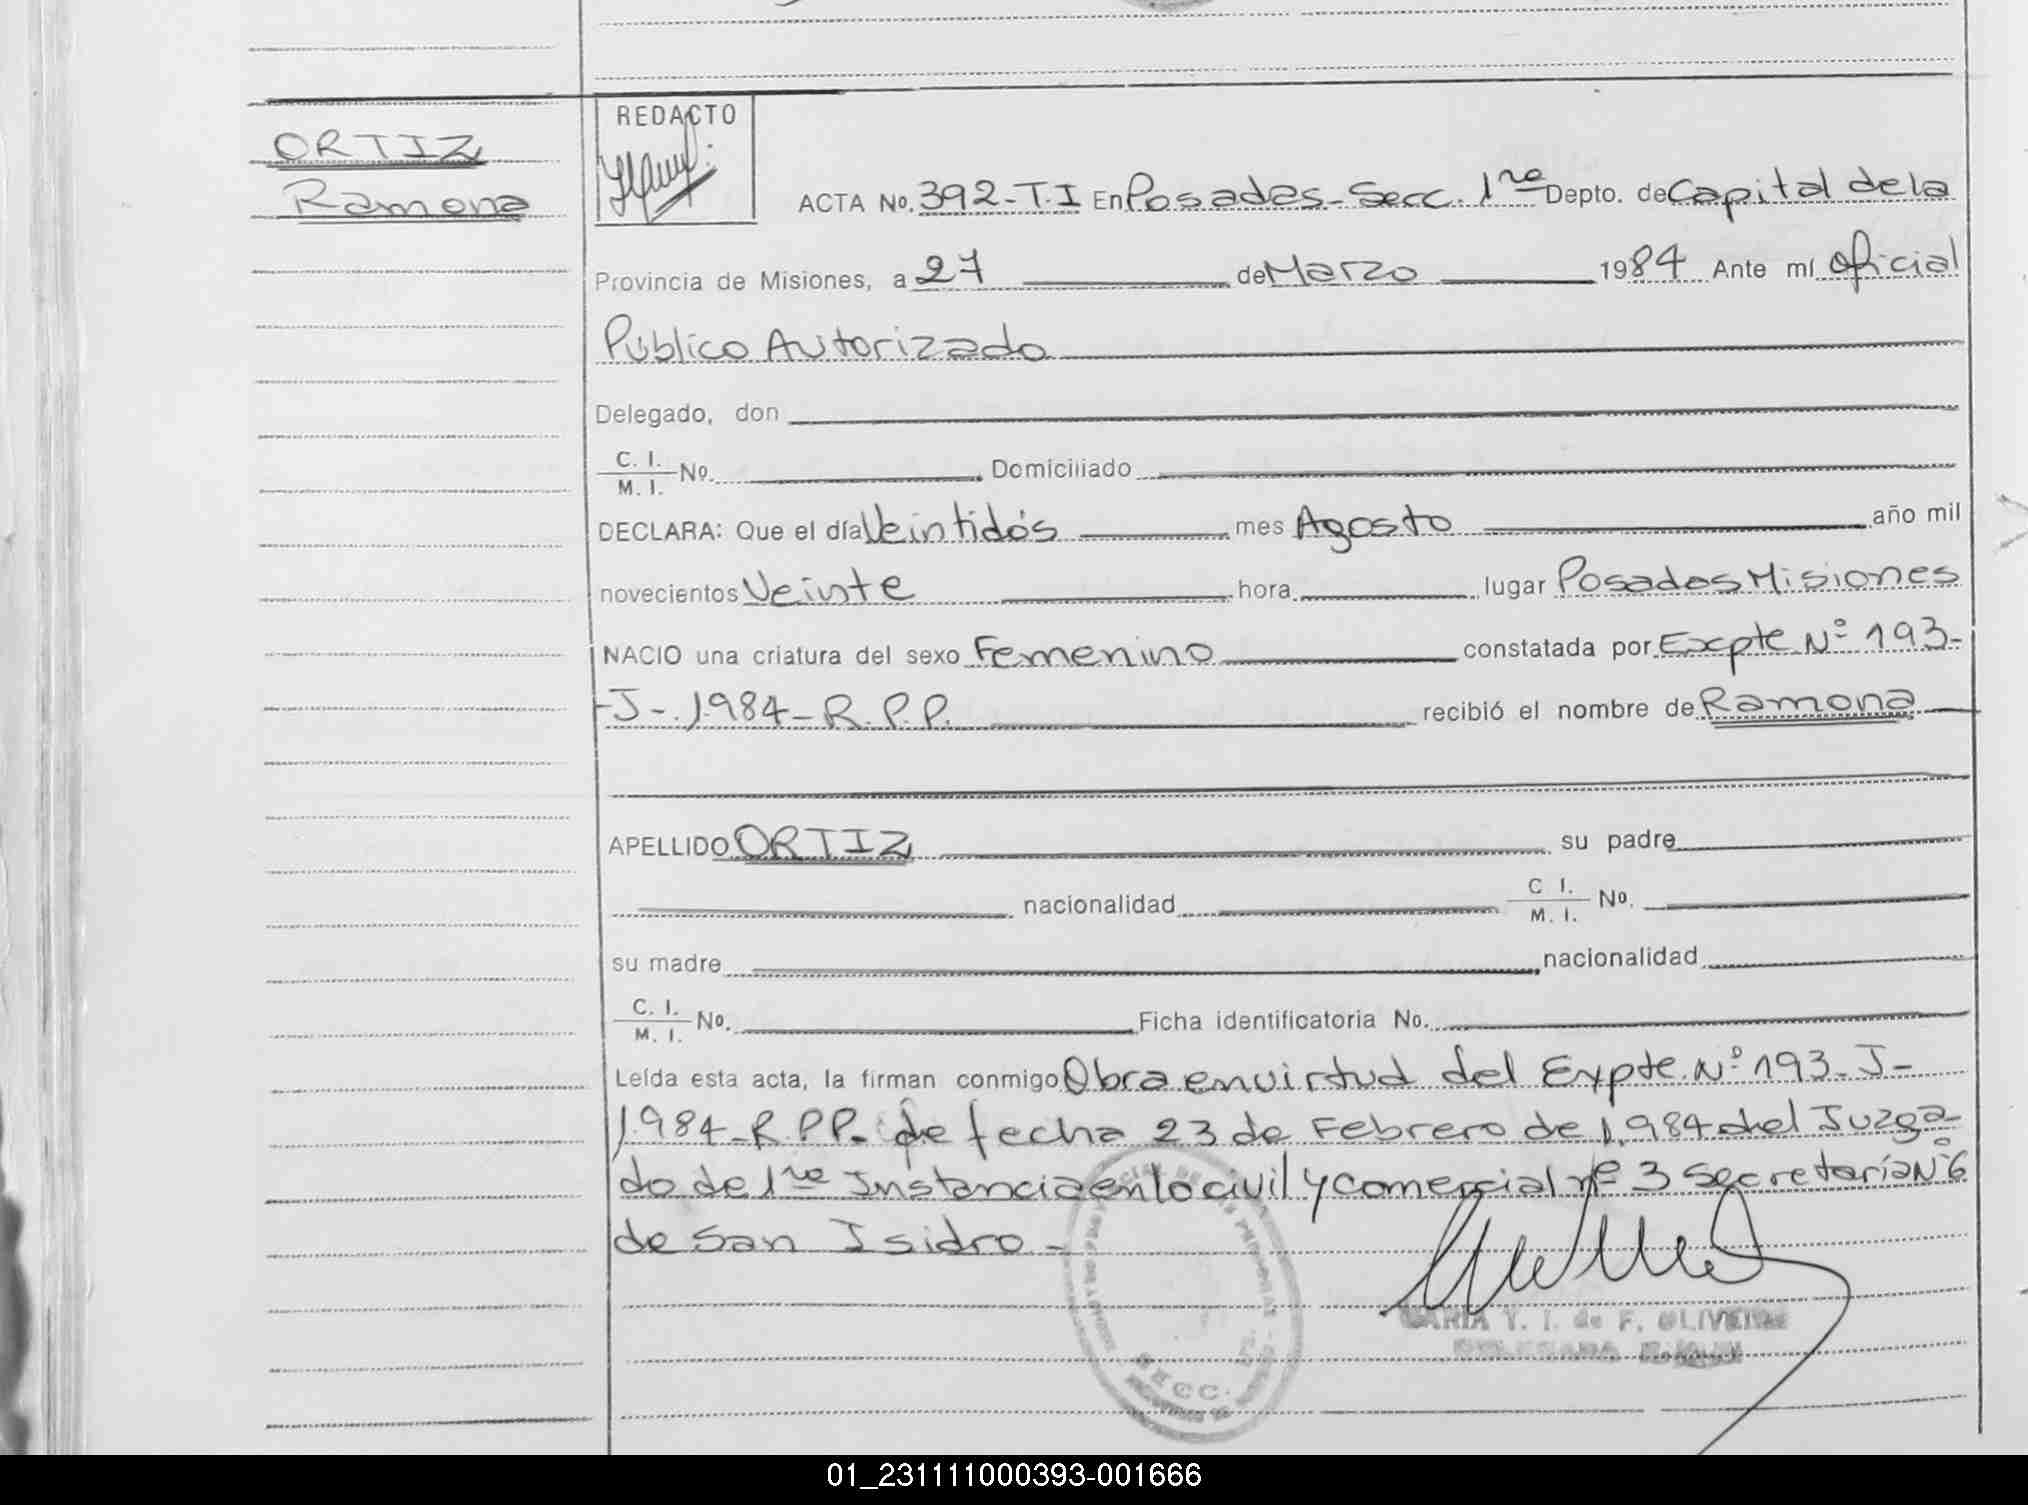 ORTIZ
Ramona
REDACTO
ACTA No. 392-T.I En Posadas - Secc. 1ra Depto. de Capital de la
Provincia de Misiones, a 27 de Marzo 1984 Ante mí Oficial
Público Autorizado
Delegado, don
C. I.
M. I. No. Domiciliado
DECLARA: Que el día Veintidós mes Agosto año mil
novecientos Veinte hora lugar Posadas Misiones
NACIO una criatura del sexo Femenino constatada por Excpte Nº 193-
-J-.1984-R.P.P. recibió el nombre de Ramona
APELLIDO ORTIZ su padre
nacionalidad C I.
M. I. No.
su madre nacionalidad
C. I.
M. I. No. Ficha identificatoria No.
Leída esta acta, la firman conmigo Obra en virtud del Expte. Nº 193-J-
1.984-R.P.P. de fecha 23 de Febrero de 1.984 del Juzga
do de 1ra Instancia en lo civil y comercial nº 3 Secretaría Nº 6
de San Isidro -
MARIA Y. I. de F. OLIVEIRA
SECC.
01_231111000393-001666